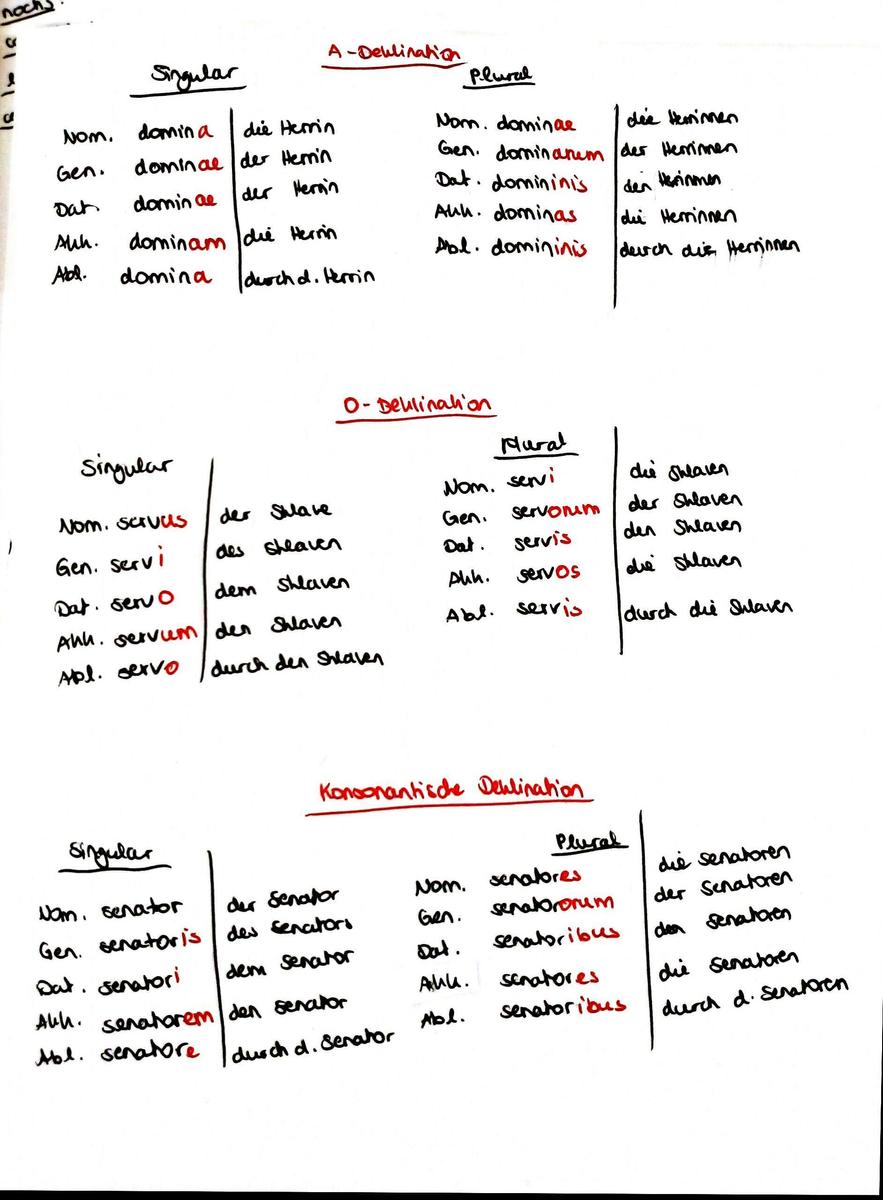 nochs.
A-Deklination
Singular Plural
Nom. domina die Herrin
Gen. dominae der Herrin
Dat. dominae der Herrin
Akk. dominam die Herrin
Abl. domina durch d. Herrin
Nom. dominae die Herrinnen
Gen. dominarum der Herrinnen
Dat. domininis den Herrinnen
Akk. dominas die Herrinnen
Abl. domininis durch die Herrinnen
O-Deklination
Singular
Nom. servus der Sklave
Gen. servi des Sklaven
Dat. servo dem Sklaven
Akk. servum den Sklaven
Abl. servo durch den Sklaven
Plural
Nom. servi die Sklaven
Gen. servorum der Sklaven
Dat. servis den Sklaven
Akk. servos die Sklaven
Abl. servis durch die Sklaven
Konsonantische Deklination
Singular
Nom. senator der Senator
Gen. senatoris des Senators
Dat. senatori dem Senator
Akk. senatorem den Senator
Abl. senatore durch d. Senator
Plural
Nom. senatores die Senatoren
Gen. senatororum der Senatoren
Dat. senatoribus den Senatoren
Akk. senatores die Senatoren
Abl. senatoribus durch d. Senatoren